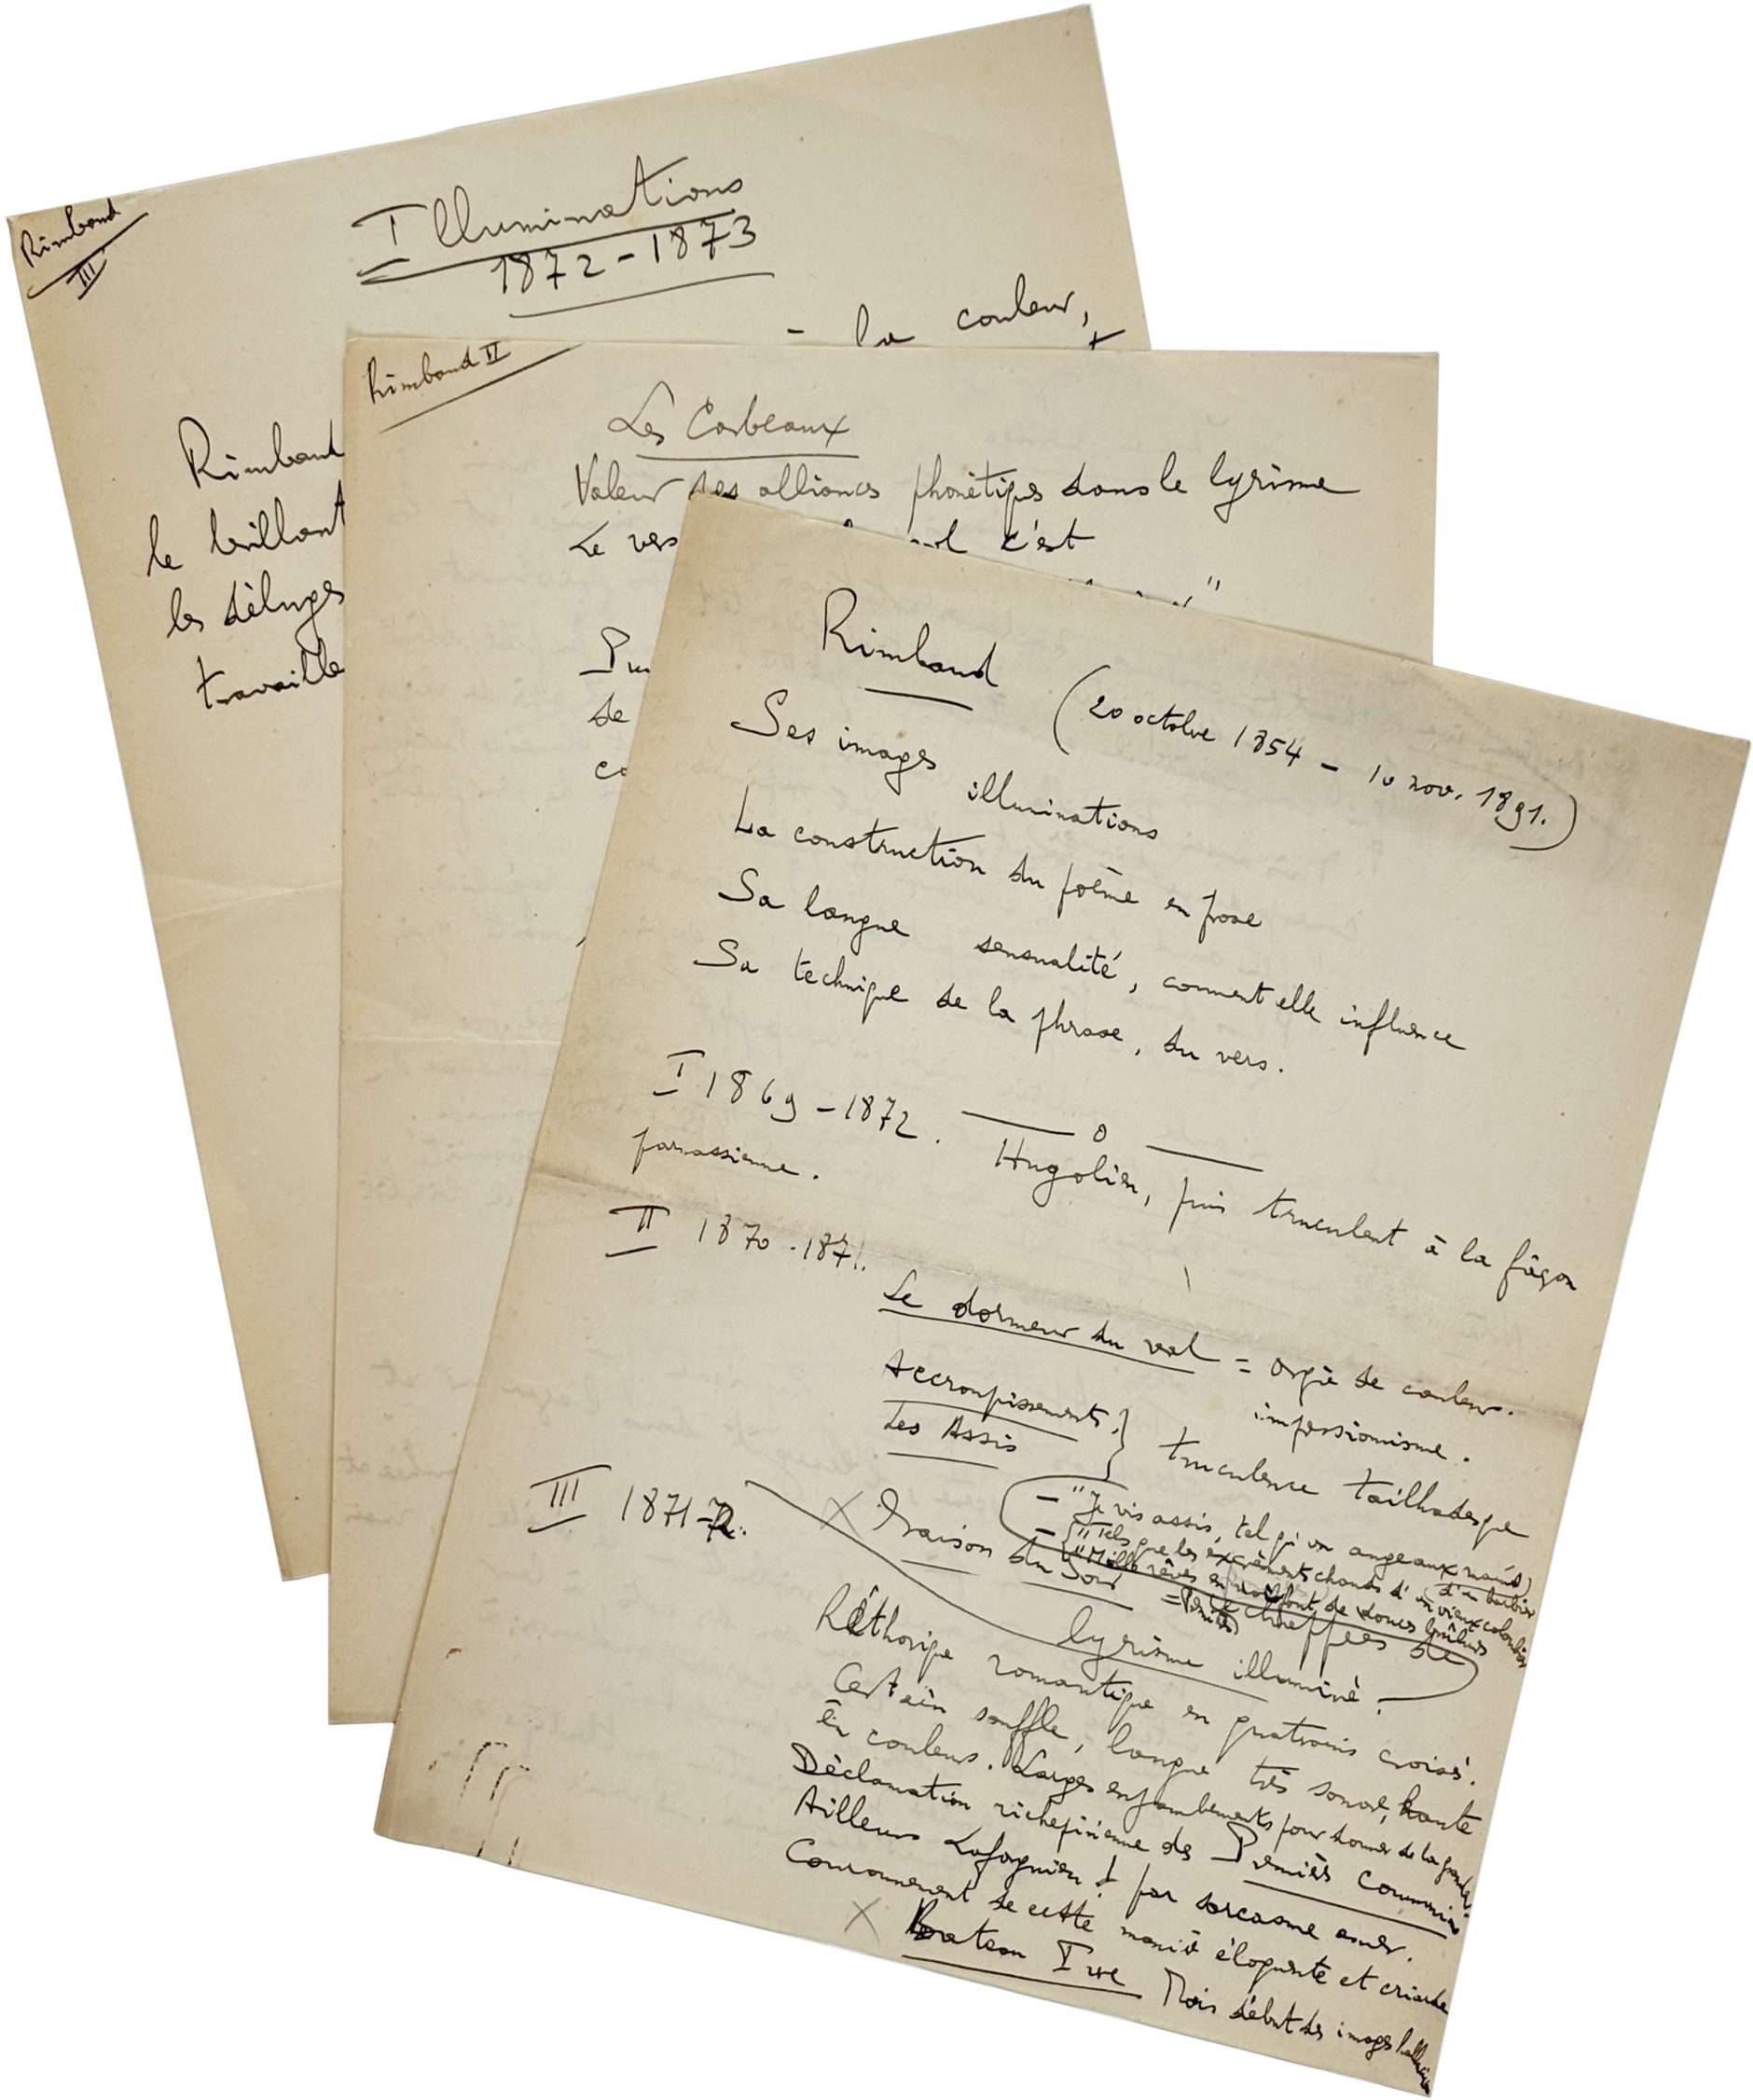 Rimbaud
III
Illuminations
1872-1873
- la couleur,
Rimbaud
le brillant
les déluges
travaille
Rimbaud II
Les Corbeaux
Valeur des alliances phonétiques dans le lyrisme
Le vers c'est
de
Rimbaud (20 octobre 1854 - 10 nov. 1891.)
Ses images illuminations
La construction du poème en prose
Sa langue sensualité, comment elle influence
Sa technique de la phrase, du vers.
I 1869-1872. Hugolien, puis truculent à la façon
parnassienne.
II 1870-1871.
Le dormeur du val = orgie de couleur.
impressionnisme.
Accroupissements.
Les Assis } truculence tailhadesque
III 1871-72.
X Oraison du Soir
- "Je vis assis, tel qu'un ange aux mains
d'un barbier
- "Tels que les excréments chauds d'un vieux colombier
"Mille rêves en moi font de douces brûlures
lyrisme illuminé.
Réthorique romantique en quatrains croisés.
Certain souffle, langue très sonore, haute
en couleurs. Larges enjambements pour donner de la
Déclamation richepinienne des Premières Communions
Ailleurs Laforguien + par sarcasme amer.
Couronnement de cette manière éloquente et criarde
X Bateau Ivre Mais début des images